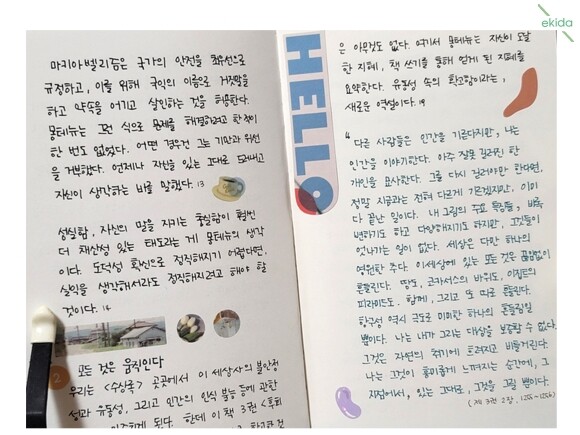 ekida
마키아벨리즘은 국가의 안전을 최우선으로
규정하고, 이를 위해 국익의 이름으로 거짓말을
하고 약속을 어기고 살인하는 것을 허용한다.
몽테뉴는 그런 식으로 문제를 해결하려고 한 적이
한 번도 없었다. 어떤 경우건 그는 기만과 위선
을 거부했다. 언제나 자신을 있는 그대로 드러내고
자신이 생각하는 바를 말했다. 13
성실함, 자신의 말을 지키는 충실함이 훨씬
더 채산성 있는 태도라는 게 몽테뉴의 생각
이다. 도덕성 확신으로 정직해지기 어렵다면,
실익을 생각해서라도 정직해지려고 해야 할
것이다. 14
2 모든 것은 움직인다
우리는 <수상록> 곳곳에서 이 세상사의 불안정
성과 유동성, 그리고 인간의 인식 불능 등에 관한
하게 된다. 한데 이 책 3권 <후회
HELLO
은 아무것도 없다. 여기서 몽테뉴는 자신이 도달
한 지혜, 책 쓰기를 통해 얻게 된 지혜를
요약한다. 유동성 속의 확고함이라는,
새로운 역설이다. 19
"다른 사람들은 인간을 기른다지만, 나는
인간을 이야기한다. 아주 잘못 길러진 한
개인을 묘사한다. 그를 다시 길러야만 한다면,
정말 지금과는 전혀 다르게 기르겠지만, 이미
다 끝난 일이다. 내 그림의 주요 특징들, 비록
변하기도 하고 다양해지기도 하지만, 그것들이
엇나가는 일이 없다. 세상은 다만 하나의
영원한 주다. 이 세상에 있는 모든 것은 끊임없이
흔들린다. 땅도, 코카서스의 바위도, 이집트의
피라미드도. 함께, 그리고 또 따로 흔들린다.
항구성 역시 극도로 미미한 하나의 흔들림일
뿐이다. 나는 내가 그리는 대상을 보증할 수 없다.
그것은 자연의 취기에 흐려지고 비틀거린다.
나는 그것이 흥미롭게 느껴지는 순간에, 그
지점에서, 있는 그대로, 그것을 그릴 뿐이다.
(제 3권 2장, 1255~1256)